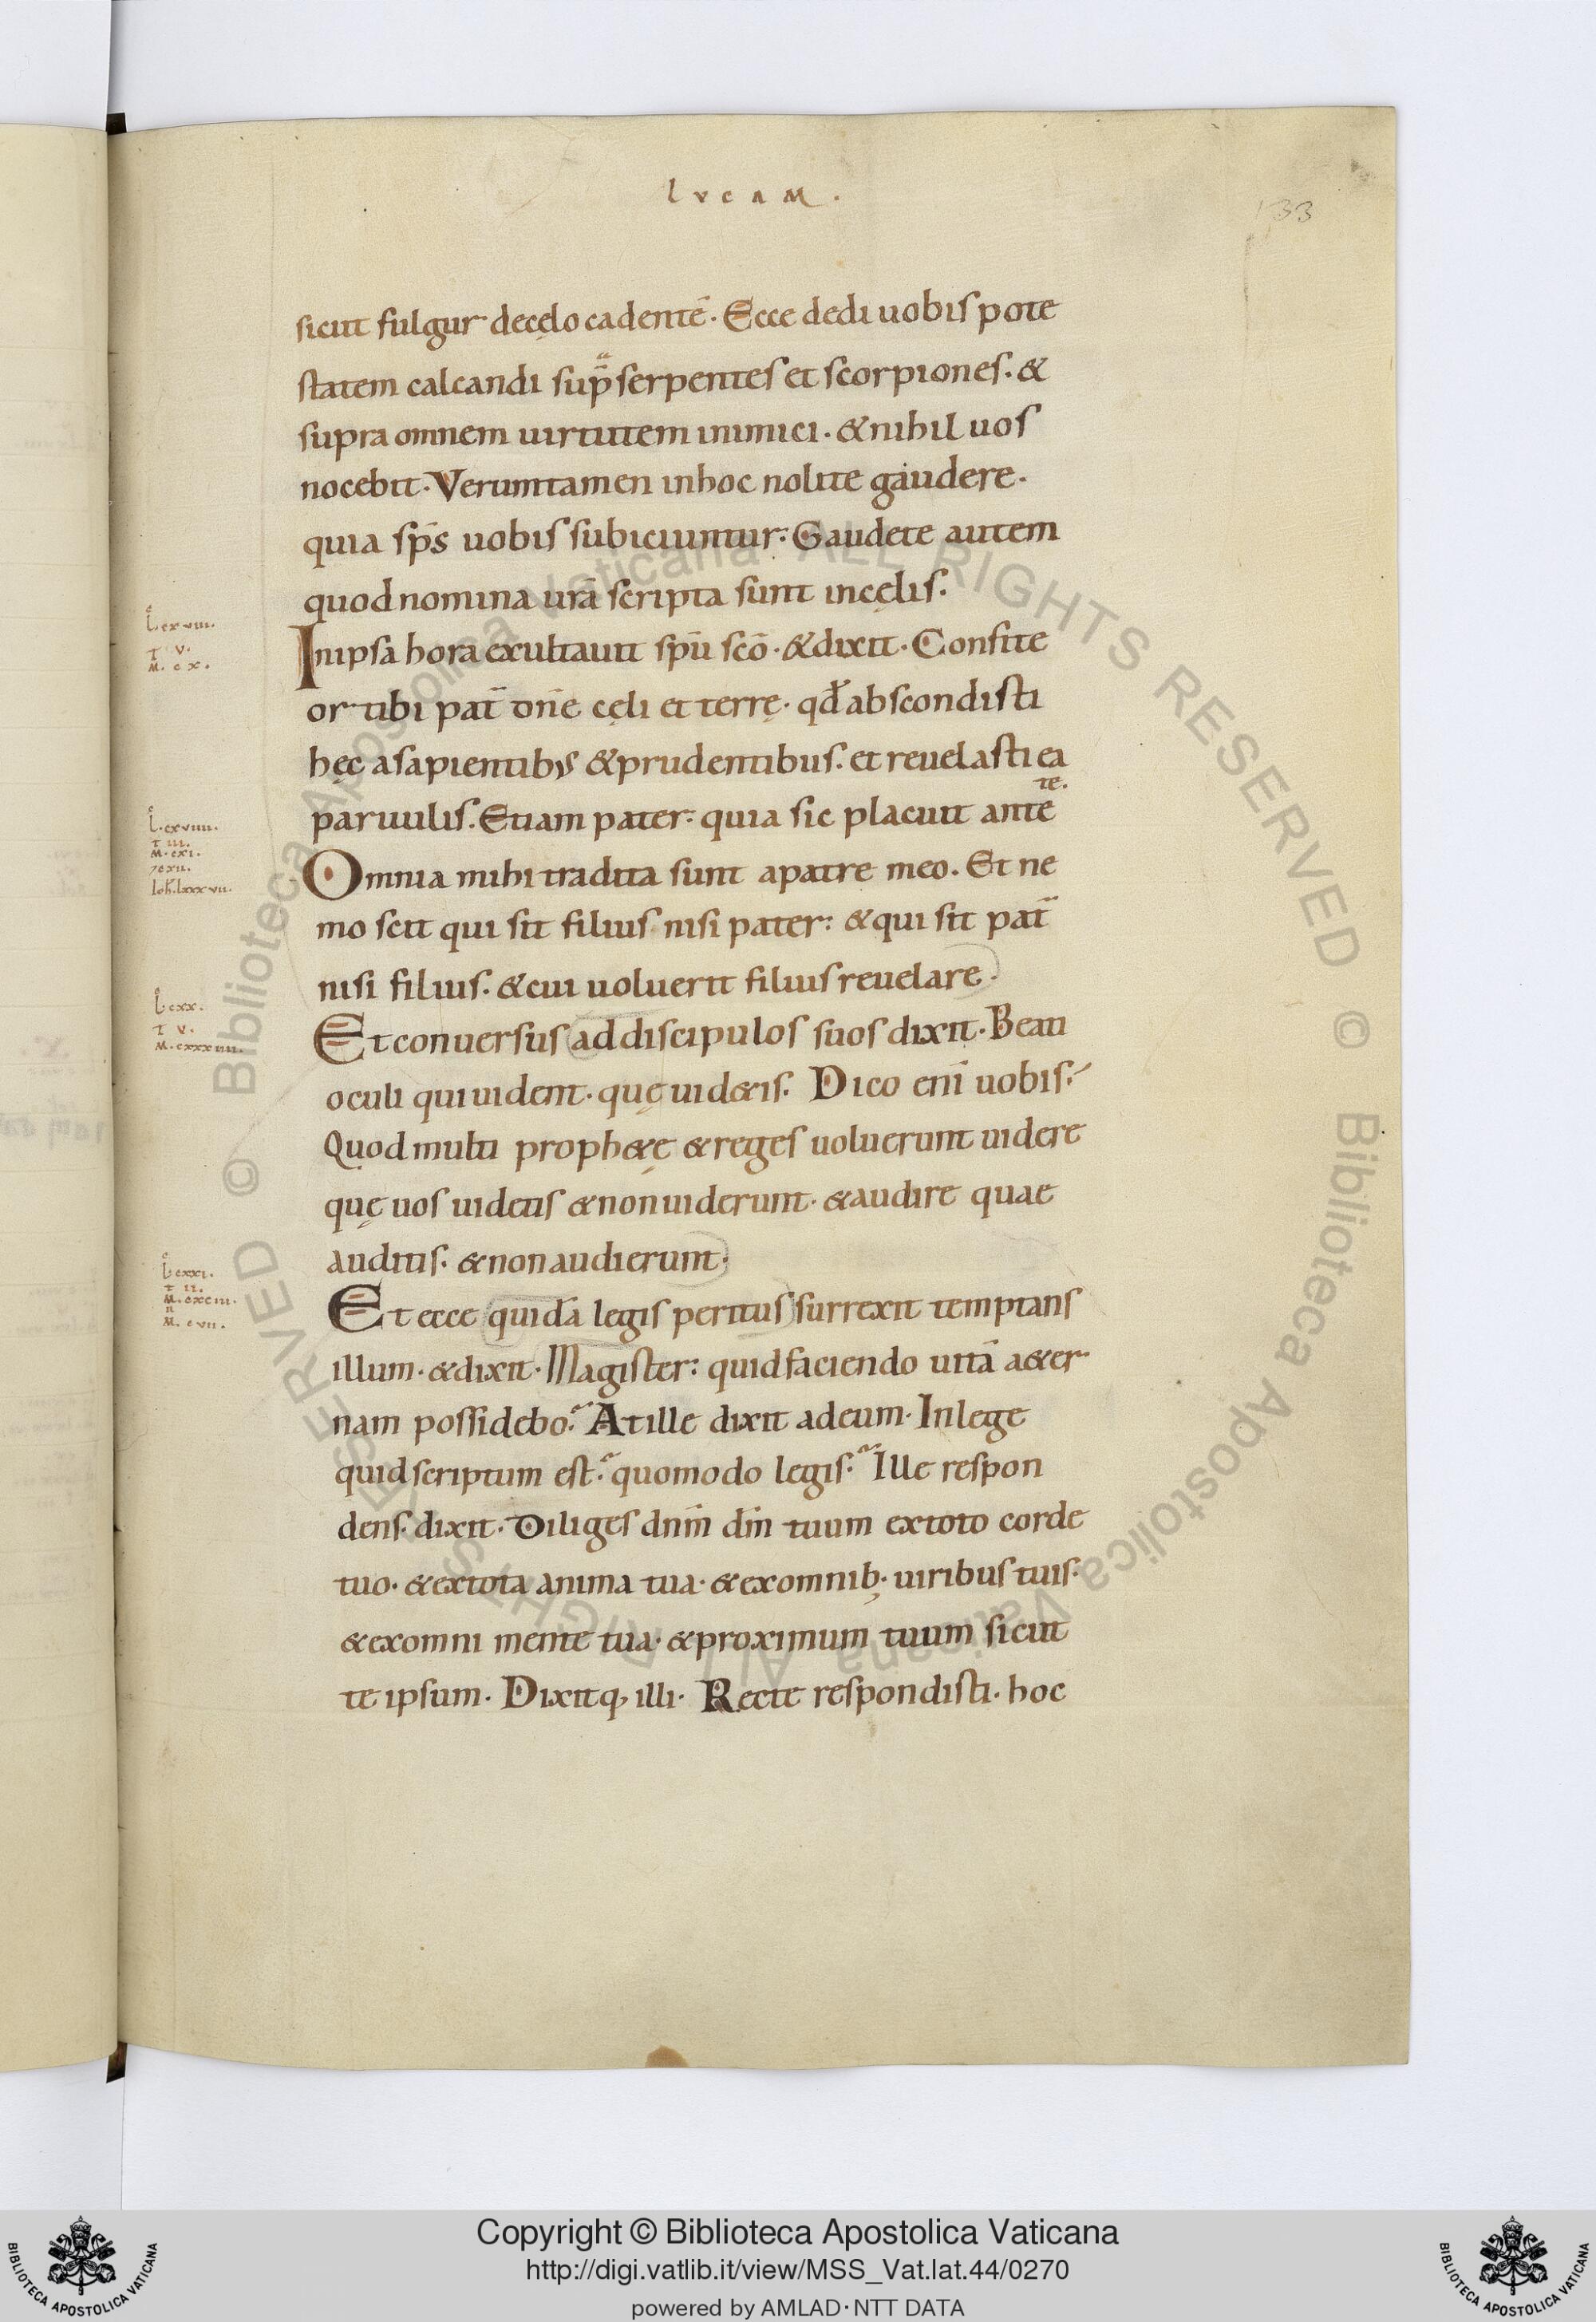 lvcaM.
133
sicut fulgur decęlo cadentē. Ecce dedi uobis pote
statem calcandi sup̄ serpentes et scorpiones. &
supra omnem uirtutem inimici. & nihil uos
nocebit. Verumtamen inhoc nolite gaudere.
quia sp̄s uobis subiciuntur. Gaudete autem
quod nomina ur̄a scripta sunt incęlis.
L cxviii.
T V.
M. c x.
Inipsa hora exultauit sp̄u sc̄o. & dixit. Confite
or tibi pat̄ dn̄e cęli et terrę. qđ abscondisti
hęc asapientibus & prudentibus. et reuelasti ea
paruulis. Etiam pater. quia sic placuit ante te.
L. cxviiii.
T iii.
M. cxi.
Omnia mihi tradita sunt apatre meo. Et ne
mo scit qui sit filius nisi pater. & qui sit pat̄
nisi filius. & cui uoluerit filius reuelare.
L cxx.
T V.
M. cxxxiiii.
Et conuersus ad discipulos suos dixit. Beati
oculi qui uident. quę uid&is. Dico eni̅ uobis.
Quod multi proph&ę & reges uoluerunt uidere
quę uos uidetis & non uiderunt. & audire quae
auditis. & non audierunt.
L cxxi.
T ii.
M. cxciii.
M. cvii.
Et ecce quidā legis peritus surrexit temptans
illum. & dixit. Magister. quid faciendo uitā a&er
nam possidebo. At ille dixit adeum. Inlege
quid scriptum est. quomodo legis. Ille respon
dens. dixit. Diliges dnm̄ dm̄ tuum extoto corde
tuo. & extota anima tua. & exomnib; uiribus tuis.
& exomni mente tua. & proximum tuum sicut
te ipsum. Dixitq, illi. Recte respondisti. hoc
© Biblioteca Apostolica Vaticana ALL RIGHTS RESERVED © Biblioteca Apostolica Vaticana ALL RIGHTS RESERVED
Copyright © Biblioteca Apostolica Vaticana
http://digi.vatlib.it/view/MSS_Vat.lat.44/0270
powered by AMLAD·NTT DATA
BIBLIOTECA APOSTOLICA VATICANA
BIBLIOTECA APOSTOLICA VATICANA